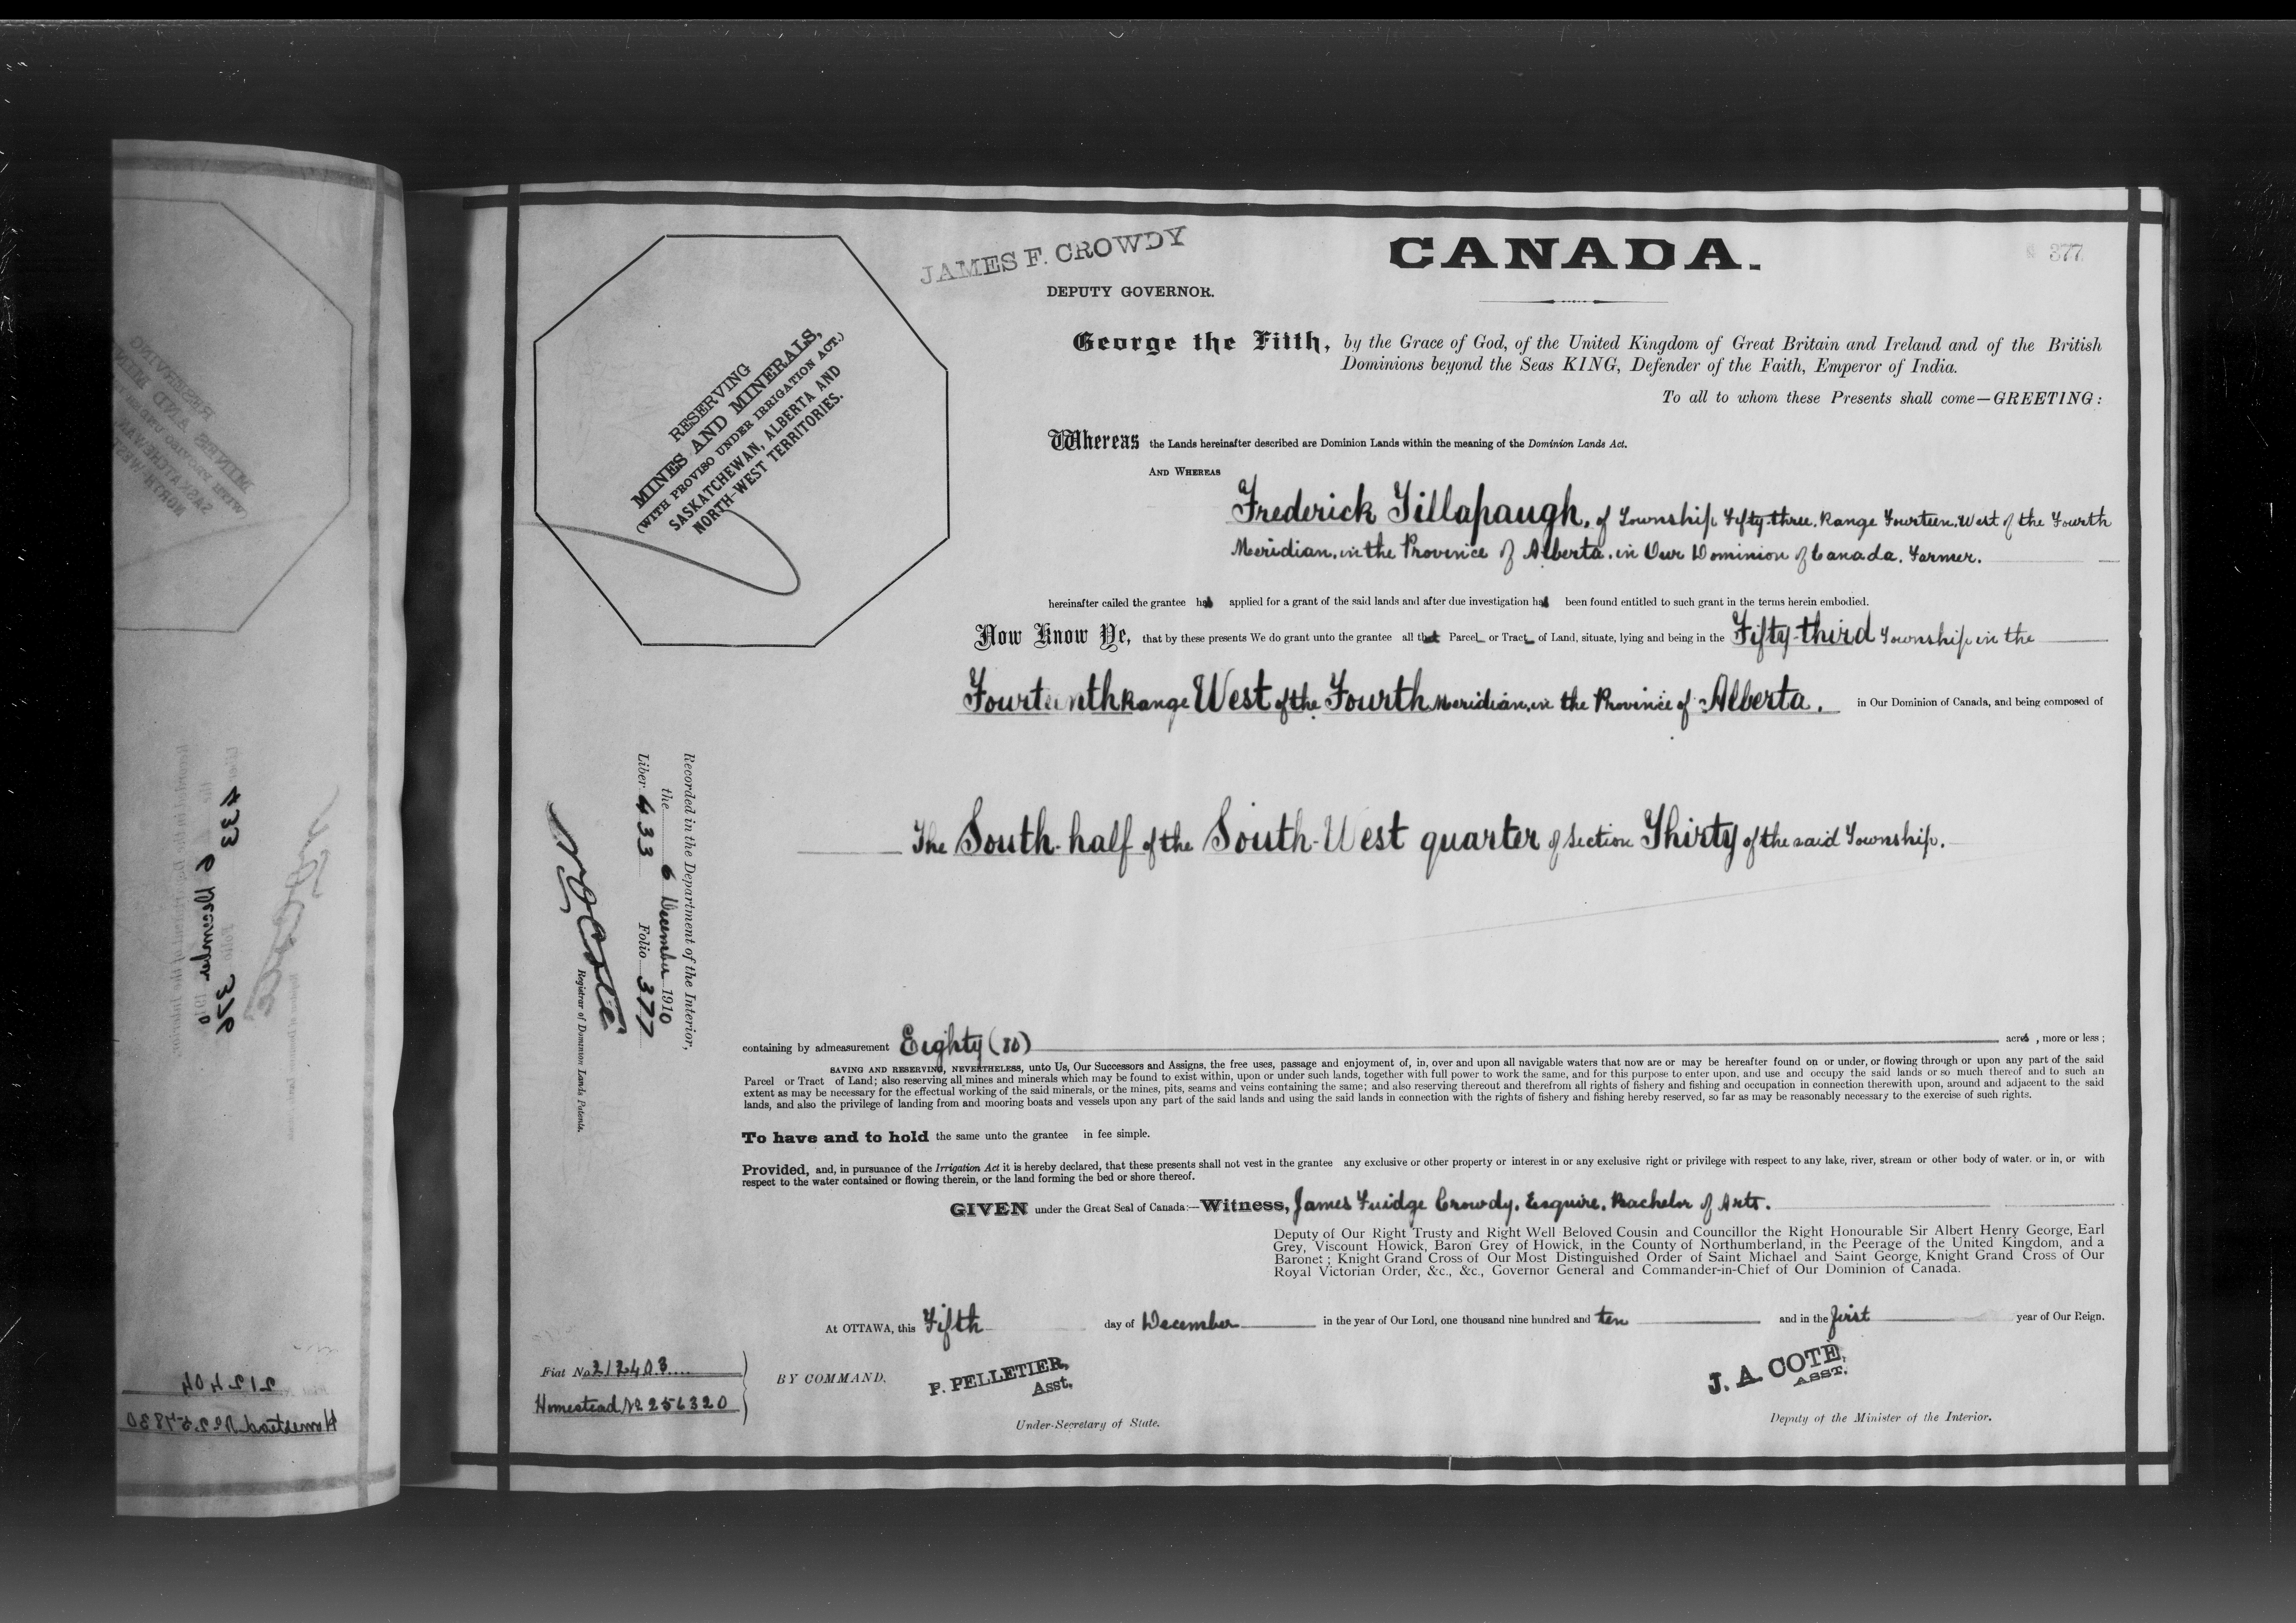 JAMES F. CROWDY
DEPUTY GOVERNOR.
CANADA.
377
RESERVING
MINES AND MINERALS,
(WITH PROVISO UNDER IRRIGATION ACT.)
SASKATCHEWAN, ALBERTA AND
NORTH-WEST TERRITORIES.
George the Fifth, by the Grace of God, of the United Kingdom of Great Britain and Ireland and of the British
Dominions beyond the Seas KING, Defender of the Faith, Emperor of India.
To all to whom these Presents shall come—GREETING:
Whereas the Lands hereinafter described are Dominion Lands within the meaning of the Dominion Lands Act.
AND WHEREAS
Frederick Tillapaugh, of Township Fifty-three, Range Fourteen, West of the Fourth
Meridian, in the Province of Alberta, in Our Dominion of Canada, Farmer.
hereinafter called the grantee has applied for a grant of the said lands and after due investigation has been found entitled to such grant in the terms herein embodied.
Now Know Ye, that by these presents We do grant unto the grantee all that Parcel or Tract of Land, situate, lying and being in the Fifty-third Township in the
Fourteenth Range West of the Fourth Meridian, in the Province of Alberta, in Our Dominion of Canada, and being composed of
The South-half of the South-West quarter of Section Thirty of the said Township.
Recorded in the Department of the Interior,
the 6 December 1910
Liber 433 Folio 377
N O Coté
Registrar of Dominion Lands Patents.
containing by admeasurement Eighty (80) acres, more or less;
SAVING AND RESERVING, NEVERTHELESS, unto Us, Our Successors and Assigns, the free uses, passage and enjoyment of, in, over and upon all navigable waters that now are or may be hereafter found on or under, or flowing through or upon any part of the said
Parcel or Tract of Land; also reserving all mines and minerals which may be found to exist within, upon or under such lands, together with full power to work the same, and for this purpose to enter upon, and use and occupy the said lands or so much thereof and to such an
extent as may be necessary for the effectual working of the said minerals, or the mines, pits, seams and veins containing the same; and also reserving thereout and therefrom all rights of fishery and fishing and occupation in connection therewith upon, around and adjacent to the said
lands, and also the privilege of landing from and mooring boats and vessels upon any part of the said lands and using the said lands in connection with the rights of fishery and fishing hereby reserved, so far as may be reasonably necessary to the exercise of such rights.
To have and to hold the same unto the grantee in fee simple.
Provided, and, in pursuance of the Irrigation Act it is hereby declared, that these presents shall not vest in the grantee any exclusive or other property or interest in or any exclusive right or privilege with respect to any lake, river, stream or other body of water. or in, or with
respect to the water contained or flowing therein, or the land forming the bed or shore thereof.
GIVEN under the Great Seal of Canada:—Witness, James Fuidge Crowdy, Esquire, Bachelor of Arts.
Deputy of Our Right Trusty and Right Well Beloved Cousin and Councillor the Right Honourable Sir Albert Henry George, Earl
Grey, Viscount Howick, Baron Grey of Howick, in the County of Northumberland, in the Peerage of the United Kingdom, and a
Baronet; Knight Grand Cross of Our Most Distinguished Order of Saint Michael and Saint George, Knight Grand Cross of Our
Royal Victorian Order, &c., &c., Governor General and Commander-in-Chief of Our Dominion of Canada.
At OTTAWA, this Fifth day of December in the year of Our Lord, one thousand nine hundred and ten and in the first year of Our Reign.
Fiat No 212403....
Homestead No. 256320
BY COMMAND,
P. PELLETIER,
Asst.
Under-Secretary of State.
J. A. COTÉ,
ASST.
Deputy of the Minister of the Interior.
433 6 December 376
212404
Homestead No 257830